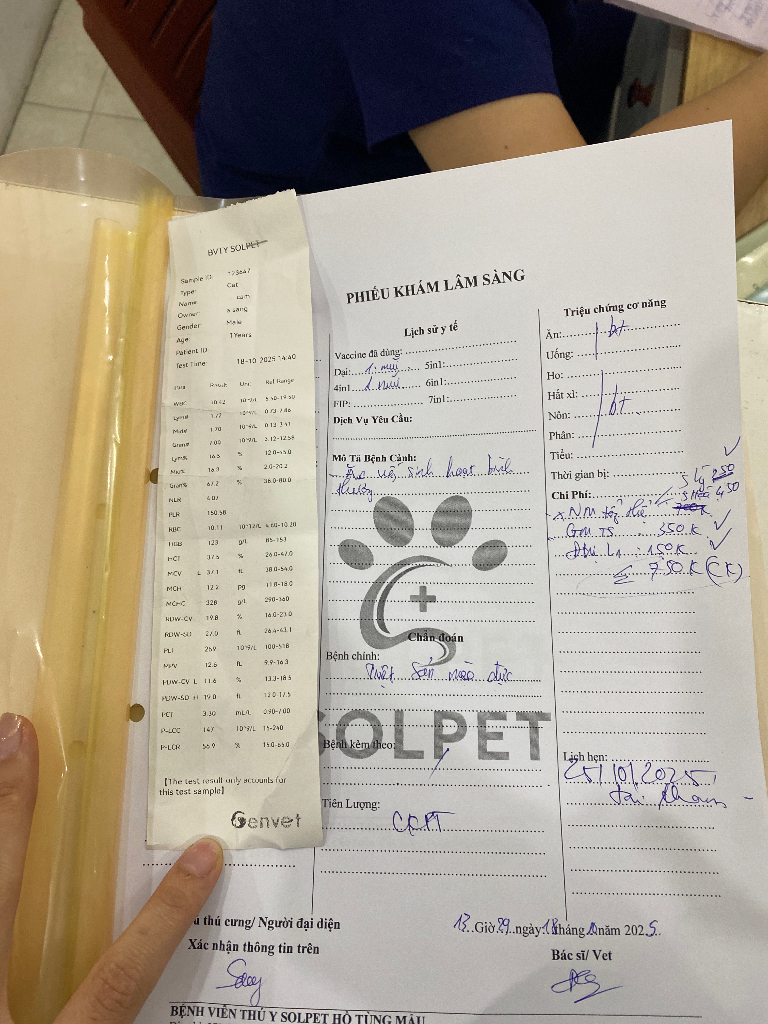 BVTY SOLPET
Sample ID: 123647
Type: Cat
Name: cam
Owner: a sang
Gender: Male
Age: 1Years
Patient ID
Test Time: 18-10-2025 14:40
Para Result Unit Ref Range
WBC 10.42 10^9/L 5.50-19.50
Lym# 1.72 10^9/L 0.73-7.86
Mid# 1.70 10^9/L 0.13-3.41
Gran# 7.00 10^9/L 3.12-12.58
Lym% 16.5 % 12.0-45.0
Mid% 16.3 % 2.0-20.2
Gran% 67.2 % 38.0-80.0
NLR 4.07
PLR 150.58
RBC 10.11 10^12/L 4.60-10.20
HGB 123 g/L 85-153
HCT 37.5 % 26.0-47.0
MCV L 37.1 fL 38.0-54.0
MCH 12.2 pg 11.8-18.0
MCHC 328 g/L 290-360
RDW-CV 19.8 % 16.0-23.0
RDW-SD 27.0 fL 26.4-43.1
PLT 259 10^9/L 100-518
MPV 12.6 fL 9.9-16.3
PDW-CV L 11.6 % 13.3-18.5
PDW-SD H 19.0 fL 12.0-17.5
PCT 3.30 mL/L 0.90-7.00
P-LCC 147 10^9/L 15-240
P-LCR 56.9 % 15.0-65.0
【The test result only accounts for
this test sample】
Genvet
PHIẾU KHÁM LÂM SÀNG
Lịch sử y tế
Vaccine đã dùng:
Dại: 1 mũi 5in1:
4in1 2 mũi 6in1:
FIP: 7in1:
Dịch Vụ Yêu Cầu:
Mô Tả Bệnh Cảnh:
Ăn uống sinh hoạt bình
thường
Chẩn đoán
Bệnh chính:
Triệt sản mèo đực
SOLPET
Bệnh kèm theo:
Tiên Lượng:
Triệu chứng cơ năng
Ăn: bt
Uống:
Ho:
Hắt xì:
Nôn: bt
Phân:
Tiểu:
Thời gian bị:
Chi Phí: 450
350K
150K
750K (CK)
Lịch hẹn:
25/10/2025
tái khám
thú cưng/ Người đại diện
Xác nhận thông tin trên
13 Giờ 29 ngày 18 tháng 10 năm 2025
Bác sĩ/ Vet
BỆNH VIỆN THÚ Y SOLPET HỒ TÙNG MẬU